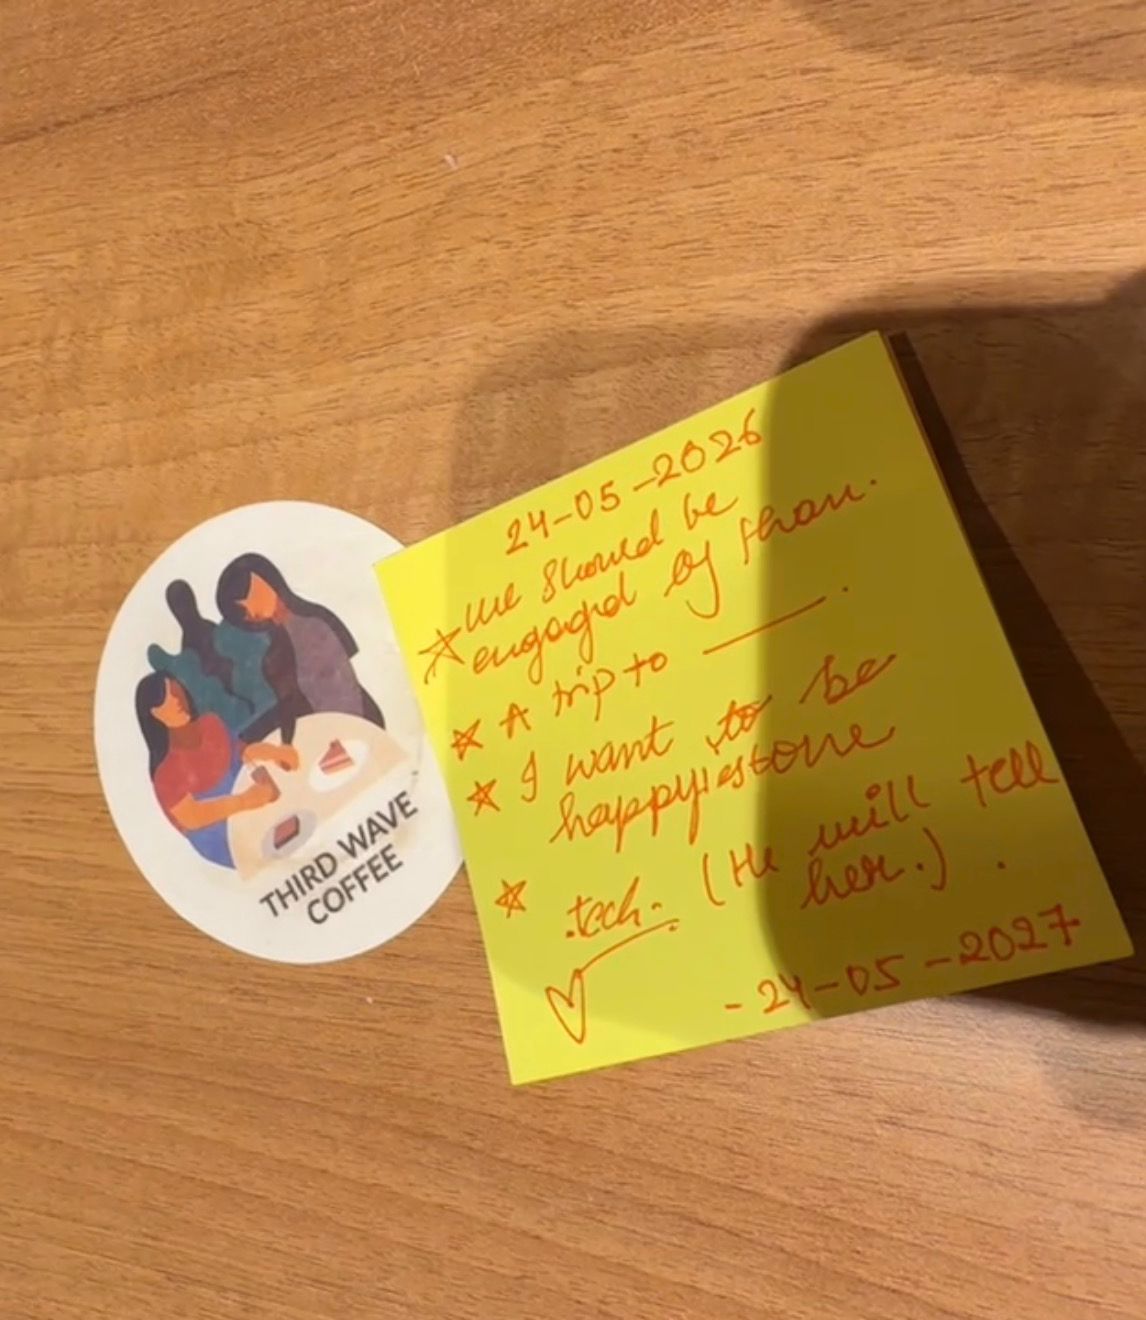 THIRD WAVE
COFFEE
24-05-2026
☆ we should be
engaged by
☆ A trip to ———.
☆ I want to be
happy
☆ .tech. (He will tell
her.) .
♡
- 24-05-2027